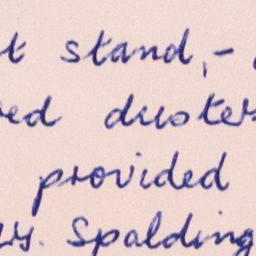 t stand,-
ed dusters
provided
rs. Spalding